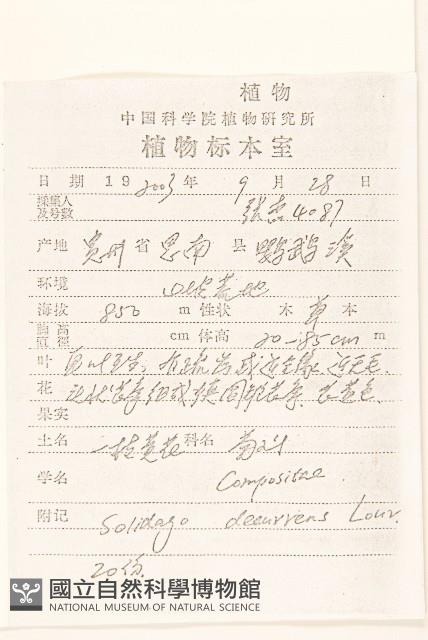 植物
中国科学院植物研究所
植物标本室
日期 19 2003 年 9 月 28 日
採集人
及号数 张杰 4087
产地 贵州 省 思南 县 鹦鹉溪
环境 山坡荒地
海拔 850 m 性状 木 草 本
胸高
直径 cm 体高 20-85cm m
叶 互生,
花 花黄色.
果实
土名 一枝黄花 科名 菊科
学名 Compositae
附记 Solidago decurrens Lour.
20份.
國立自然科學博物館
NATIONAL MUSEUM OF NATURAL SCIENCE